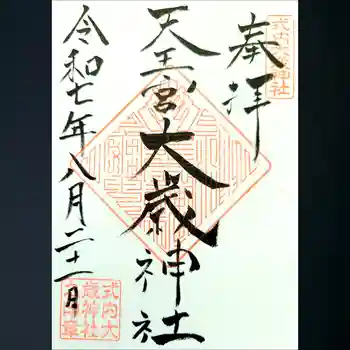 式内大歳神社
奉拝
天王宮大歳神社
令和七年八月二十一日
式内大
歳神社